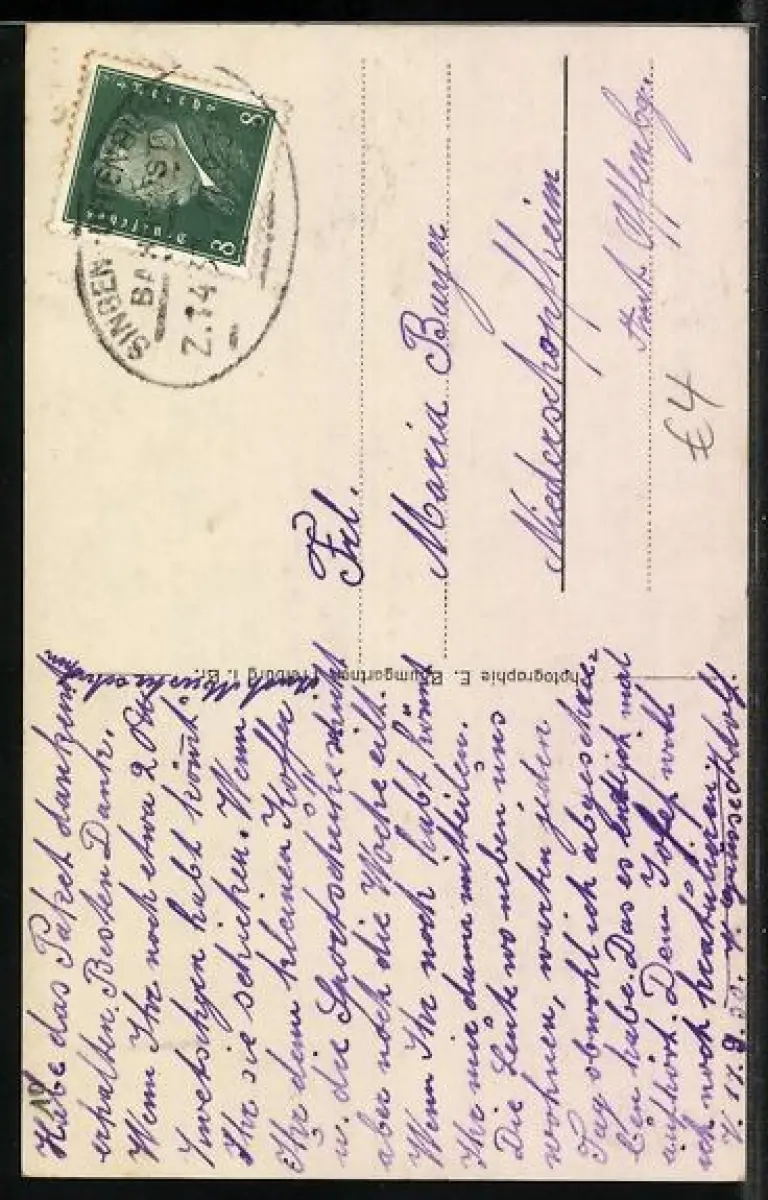 Habe das Paket dankend
erhalten. Besten Dank.
Wenn Ihr noch etwa 2 Pfd
Zwetschgen habt könnt
Ihr sie schicken. Wenn
Ihr den kleinen Koffer
u. die Sportschuhe
aber noch die Woche
Wenn Ihr noch habt könnt
Ihr mir dann mitteilen.
Die Leute wo neben uns
wohnen, warten jeden
Tag obwohl ich abgeschrie-
ben habe. Das es endlich mal
aufhört. Dem Josef will
ich noch
17.9.30.
Photographie E. Baumgartner, Freiburg i. Br.
Frl.
Maria Bayer
Niederschopfheim
Amt Offenbg.
£4
8 8
Deutsches
SINGEN
BA
Z.14
10